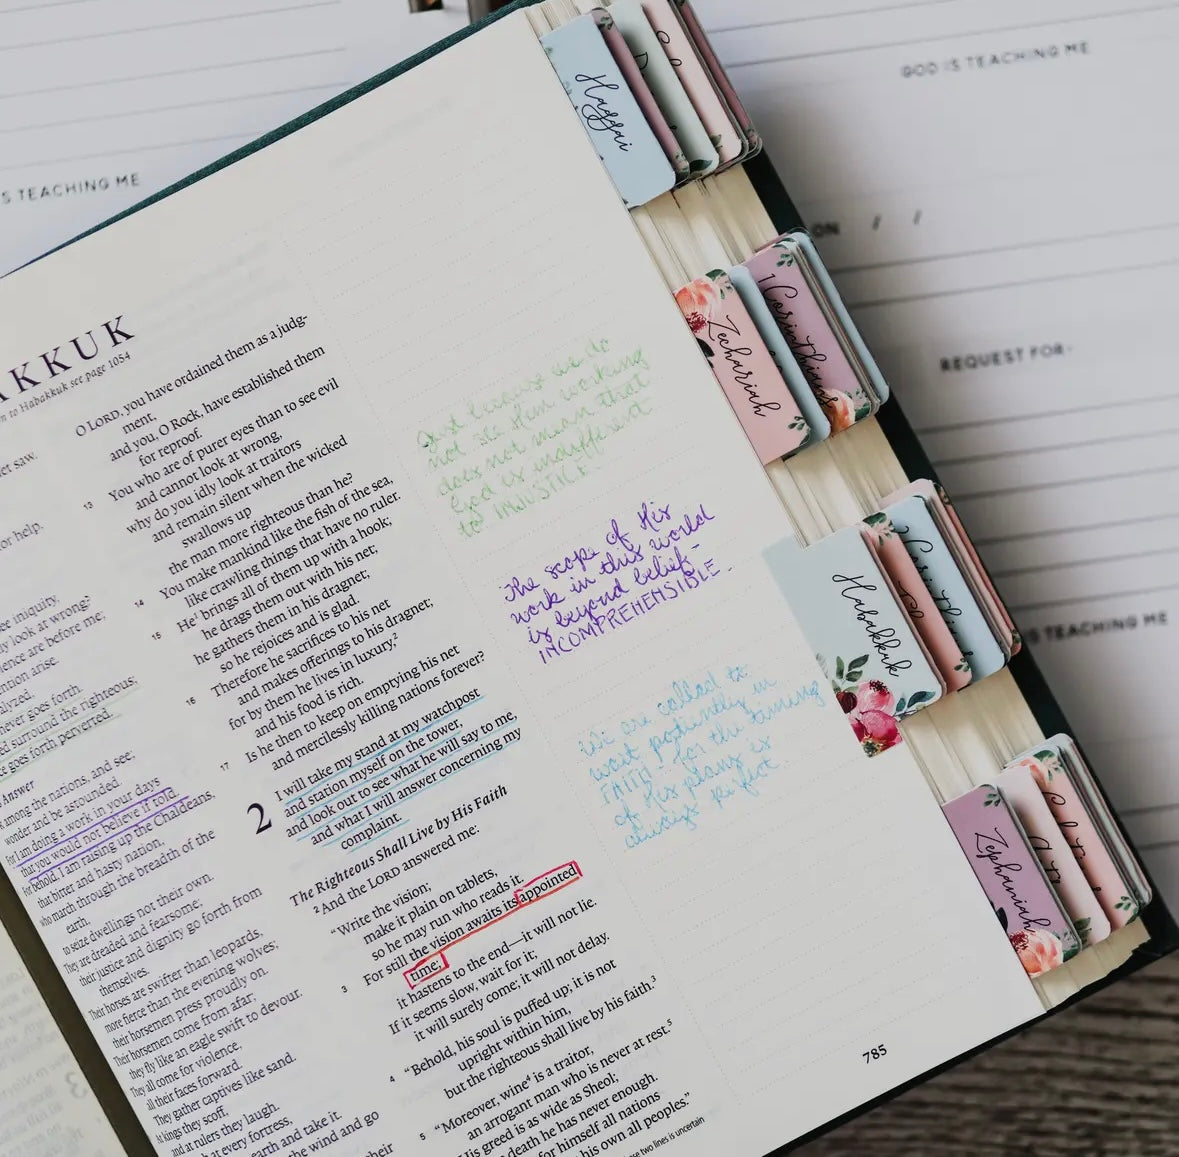 GOD IS TEACHING ME
S TEACHING ME
ON / /
REQUEST FOR-
IS TEACHING ME
Haggai
Zechariah
1 Corinthians
Habakkuk
Zephaniah
AKKUK
n to Habakkuk see page 1054
et saw.
or help.
ee iniquity,
ly look at wrong?
lence are before me;
ntention arise.
alyzed,
never goes forth.
d surround the righteous;
e goes forth perverted.
Answer
among the nations, and see;
wonder and be astounded.
For I am doing a work in your days
that you would not believe if told.
For behold, I am raising up the Chaldeans,
that bitter and hasty nation,
who march through the breadth of the
earth,
to seize dwellings not their own.
They are dreaded and fearsome;
their justice and dignity go forth from
themselves.
Their horses are swifter than leopards,
more fierce than the evening wolves;
their horsemen press proudly on.
Their horsemen come from afar;
they fly like an eagle swift to devour.
They all come for violence,
all their faces forward.
They gather captives like sand.
At kings they scoff,
and at rulers they laugh.
at every fortress,
earth and take it.
the wind and go
their
O LORD, you have ordained them as a judg-
ment,
and you, O Rock, have established them
for reproof.
13 You who are of purer eyes than to see evil
and cannot look at wrong,
why do you idly look at traitors
and remain silent when the wicked
swallows up
the man more righteous than he?
14 You make mankind like the fish of the sea,
like crawling things that have no ruler.
15 He¹ brings all of them up with a hook;
he drags them out with his net;
he gathers them in his dragnet;
so he rejoices and is glad.
16 Therefore he sacrifices to his net
and makes offerings to his dragnet;
for by them he lives in luxury,²
and his food is rich.
17 Is he then to keep on emptying his net
and mercilessly killing nations forever?
2 I will take my stand at my watchpost
and station myself on the tower,
and look out to see what he will say to me,
and what I will answer concerning my
complaint.
The Righteous Shall Live by His Faith
2 And the LORD answered me:
“Write the vision;
make it plain on tablets,
so he may run who reads it.
3 For still the vision awaits its appointed
time;
it hastens to the end—it will not lie.
If it seems slow, wait for it;
it will surely come; it will not delay.
4 “Behold, his soul is puffed up; it is not
upright within him,
but the righteous shall live by his faith.³
5 “Moreover, wine⁴ is a traitor,
an arrogant man who is never at rest.⁵
His greed is as wide as Sheol;
death he has never enough.
for himself all nations
his own all peoples.”
se two lines is uncertain
Just because we do
not see Him working
does not mean that
God is indifferent
to INJUSTICE.
The scope of His
work in this world
is beyond belief -
INCOMPREHENSIBLE.
We are called to
wait patiently in
FAITH for the timing
of His plans is
always perfect.
785